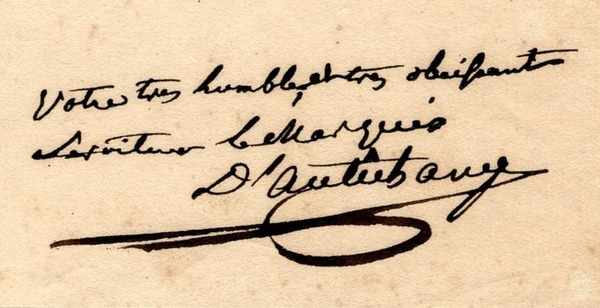 Votre tres humble, et tres obeissant
Serviteur le Marquis
D'autichamp